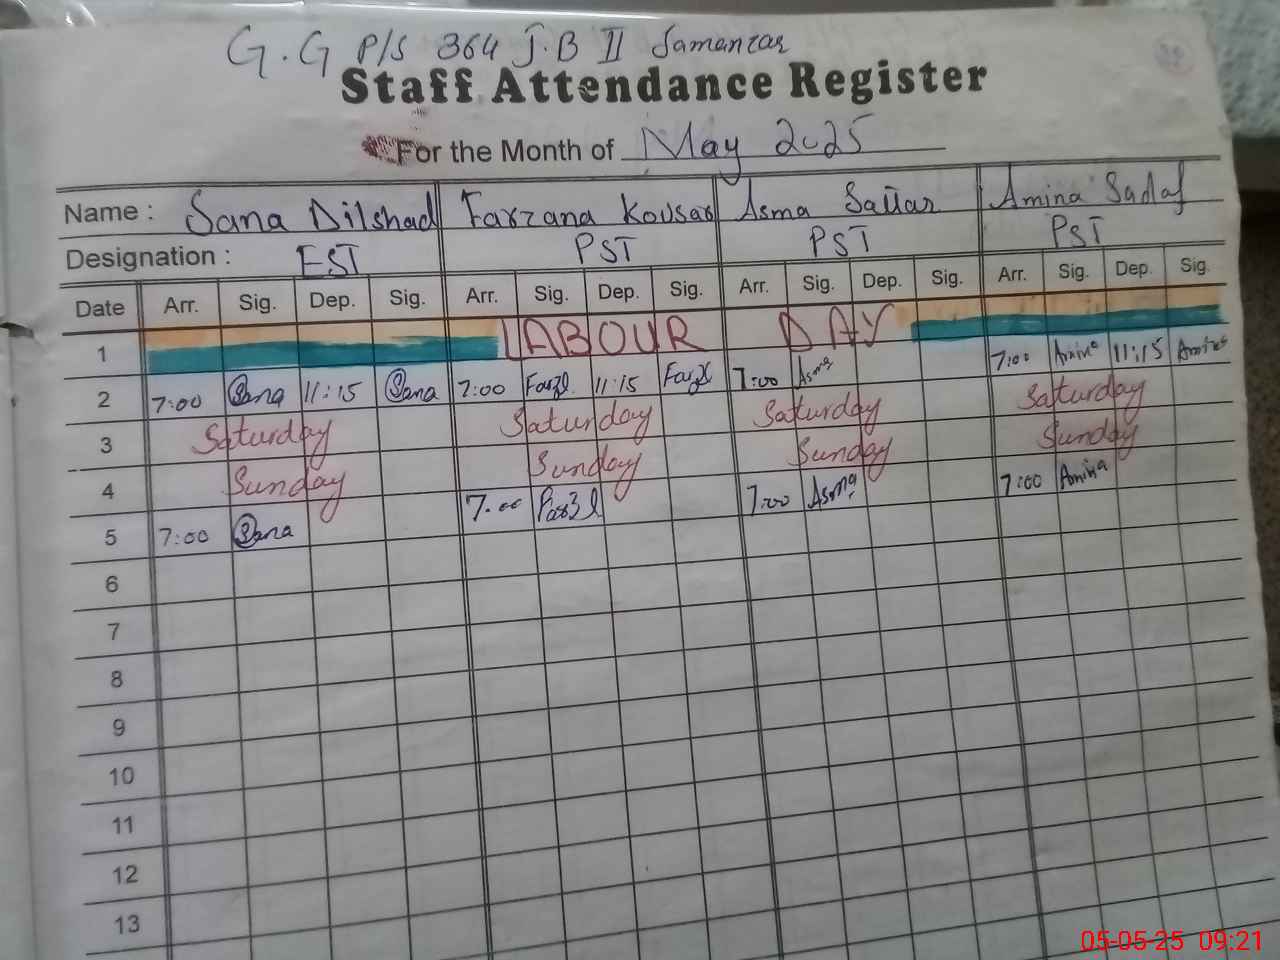 G.G P/S 364 J.B II Samanzar
Staff Attendance Register
For the Month of May 2025
Name : Sana Dilshad Farzana Kousar Asma Sattar Amina Sadaf
Designation : EST PST PST PST
Date Arr. Sig. Dep. Sig. Arr. Sig. Dep. Sig. Arr. Sig. Dep. Sig. Arr. Sig. Dep. Sig.
1 LABOUR DAY
2 7:00 Sana 11:15 Sana 7:00 11:15 7:00 Asma 7:00 Amina 11:15 Amina
3 Saturday Saturday Saturday Saturday
4 Sunday Sunday Sunday Sunday
5 7:00 Sana 7:00 7:00 Asma 7:00 Amina
6
7
8
9
10
11
12
13
05-05-25 09:21